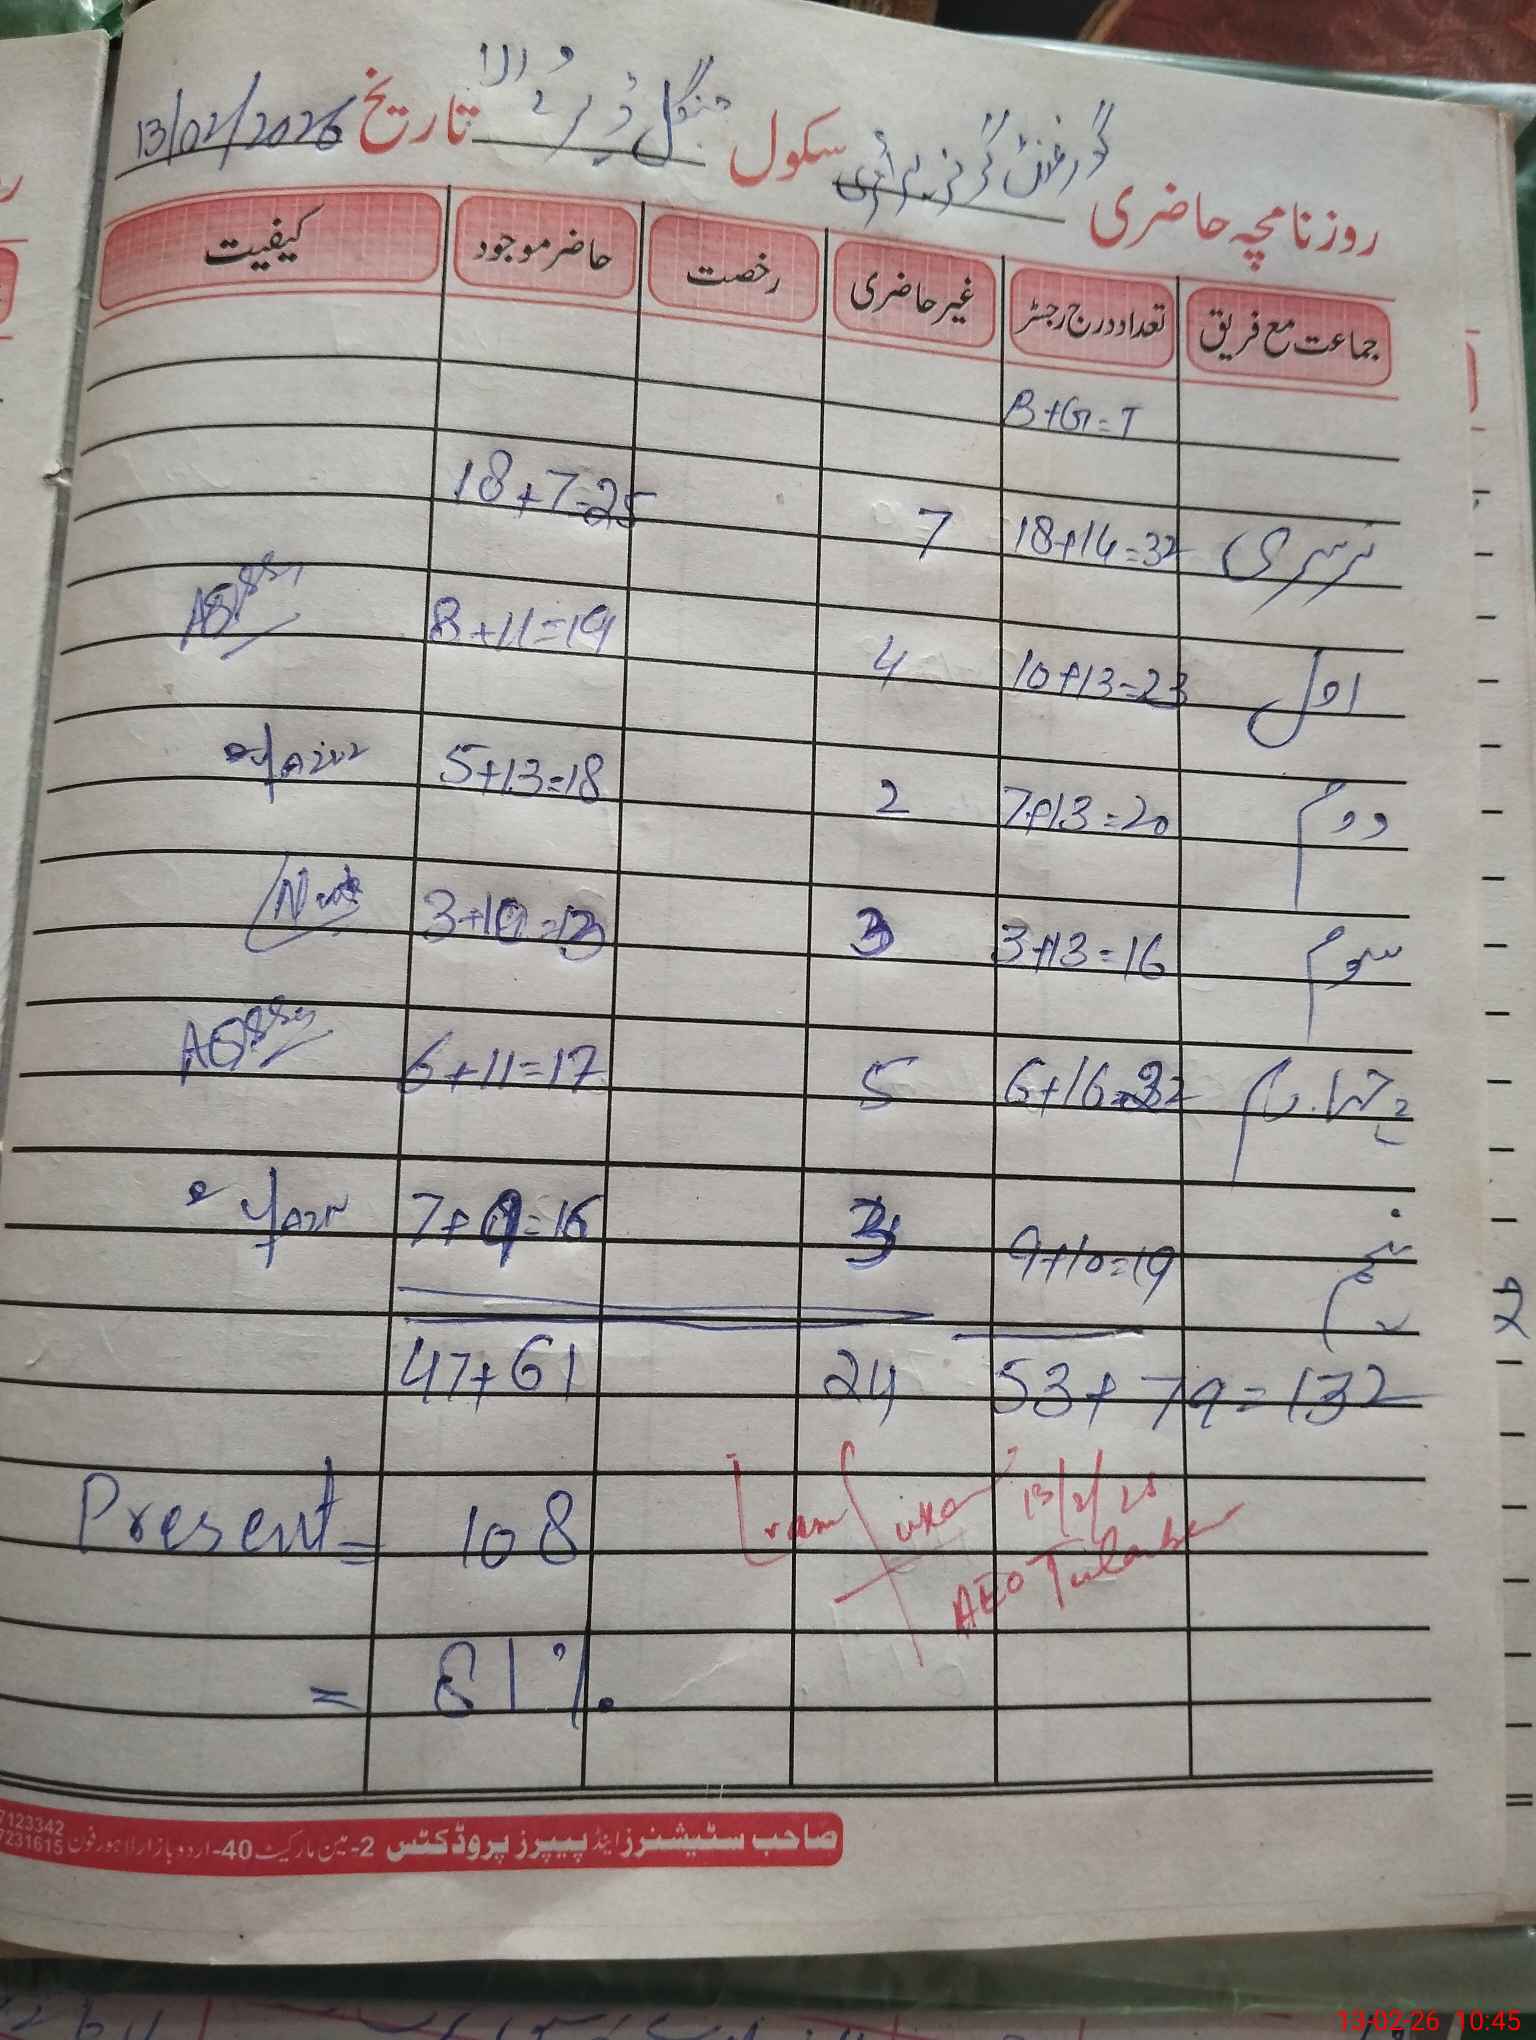 روزنامچہ حاضری گورنمنٹ گرلز پرائمری سکول جنگل ڈیرے والا تاریخ 13/02/2026
جماعت مع فریق تعداد درج رجسٹر غیر حاضری رخصت حاضر موجود کیفیت
B+G=T
نرسری 18+14=32 7 18+7=25
اول 10+13=23 4 8+11=19
دوم 7+13=20 2 5+13=18
سوم 3+13=16 3 3+10=13
چہارم 6+16=22 5 6+11=17
پنجم 9+10=19 3 7+9=16
53+79=132 24 47+61
Present = 108
13/2/26
AEO Tulamba
= 81%
صاحب سٹیشنرز اینڈ پیپرز پروڈکٹس 2-مین مارکیٹ 40-اردو بازار لاہور فون
7123342
7231615
13-02-26 10:45